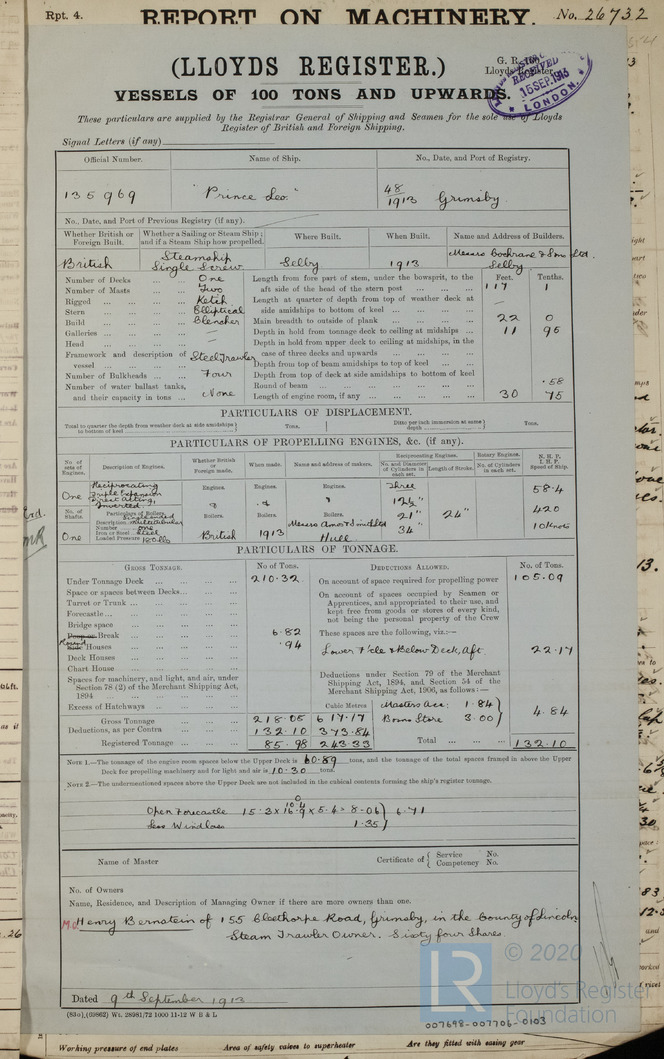 Rpt. 4. REPORT ON MACHINERY. No. 26732
(LLOYDS REGISTER.)
RECEIVED 15 SEP. 1913 LONDON.
VESSELS OF 100 TONS AND UPWARDS.
These particulars are supplied by the Registrar General of Shipping and Seamen for the sole use of Lloyds
Register of British and Foreign Shipping.
Signal Letters (if any)
Official Number. Name of Ship. No., Date, and Port of Registry.
135969 "Prince Leo." 48/1913 Grimsby
No., Date, and Port of Previous Registry (if any).
Whether British or Foreign Built. Whether a Sailing or Steam Ship; and if a Steam Ship how propelled. Where Built. When Built. Name and Address of Builders.
British Steamship Single Screw Selby 1913 Messrs Cochrane & Sons Ltd. Selby
Number of Decks ... One
Number of Masts ... Two
Rigged ... Ketch
Stern ... Elliptical
Build ... Clencher
Galleries ... —
Head ... —
Framework and description of vessel ... Steel Trawler
Number of Bulkheads ... Four
Number of water ballast tanks, and their capacity in tons ... None
Feet. Tenths.
Length from fore part of stem, under the bowsprit, to the aft side of the head of the stern post ... 117 1
Length at quarter of depth from top of weather deck at side amidships to bottom of keel ... —
Main breadth to outside of plank ... 22 0
Depth in hold from tonnage deck to ceiling at midships ... 11 95
Depth in hold from upper deck to ceiling at midships, in the case of three decks and upwards ...
Depth from top of beam amidships to top of keel ...
Depth from top of deck at side amidships to bottom of keel
Round of beam ... .58
Length of engine room, if any ... 30 75
PARTICULARS OF DISPLACEMENT.
Total to quarter the depth from weather deck at side amidships to bottom of keel Tons. Ditto per inch immersion at same depth Tons.
PARTICULARS OF PROPELLING ENGINES, &c. (if any).
No. of sets of Engines. Description of Engines. Whether British or Foreign made. When made. Name and address of makers. Reciprocating Engines. No. and Diameter of Cylinders in each set. Length of Stroke. Rotary Engines. No. of Cylinders in each set. N.H.P. I.H.P. Speed of Ship.
One Reciprocating Triple Expansion Direct Acting, Inverted. Engines. Engines. Engines. Three 12½" 58.4
No. of Shafts. Particulars of Boilers. Boilers. Boilers. Boilers. 21" 24" 420
Description Multitubular
Number one
Iron or Steel Steel
Loaded Pressure 180 lbs
One British 1913 Messrs Amos & Smith Ltd Hull 34" 10 Knots
PARTICULARS OF TONNAGE.
GROSS TONNAGE. No. of Tons. DEDUCTIONS ALLOWED. No. of Tons.
Under Tonnage Deck ... 210.32
Space or spaces between Decks ...
Turret or Trunk ...
Forecastle ...
Bridge space ...
Break ... 6.82
Round Houses ... .94
Deck Houses ...
Chart House ...
Spaces for machinery, and light, and air, under Section 78 (2) of the Merchant Shipping Act, 1894 ...
Excess of Hatchways ... Cubic Metres
Gross Tonnage 218.08 617.17
Deductions, as per Contra ... 132.10 373.84
Registered Tonnage ... 85.98 243.33
On account of space required for propelling power 105.09
On account of spaces occupied by Seamen or Apprentices, and appropriated to their use, and kept free from goods or stores of every kind, not being the personal property of the Crew
These spaces are the following, viz.:—
Lower F'cle & Below Deck, Aft 22.17
Deductions under Section 79 of the Merchant Shipping Act, 1894, and Section 54 of the Merchant Shipping Act, 1906, as follows:—
Masters Acc: 1.84
Bosns Store 3.00
4.84
Total ... 132.10
NOTE 1.—The tonnage of the engine room spaces below the Upper Deck is 60.89 tons, and the tonnage of the total spaces framed in above the Upper
Deck for propelling machinery and for light and air is 10.30 tons.
NOTE 2.—The undermentioned spaces above the Upper Deck are not included in the cubical contents forming the ship's register tonnage.
Open Forecastle 15.3 x 16.9 x 5.4 = 8.06
Less Windlass 1.35
6.71
Name of Master Certificate of Service No. Competency No.
No. of Owners
Name, Residence, and Description of Managing Owner if there are more owners than one.
Henry Bernstein of 155 Cleethorpe Road, Grimsby, in the County of Lincoln
Steam Trawler Owner. Sixty four Shares.
Dated 9th September 1913
(83o),(69862) Wt. 28981/72 1000 11-12 W B & L
LR © 2020
Lloyd's Register
Foundation
007698-007706-0103
Working pressure of end plates Area of safety valves to superheater Are they fitted with easing gear